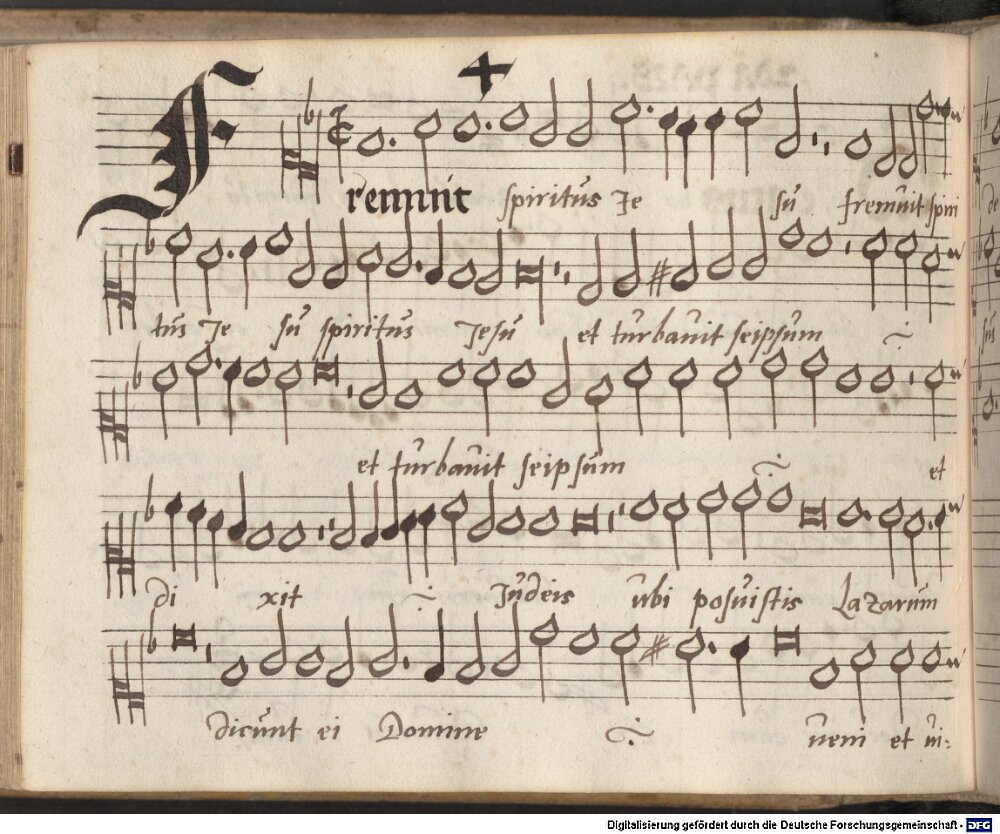 Fremuit spiritus Je su fremuit spiri
tus Je su spiritus Jesu et turbauit seipsum
et turbauit seipsum et
di xit Judeis ubi posuistis Lazarum
Dicunt ei Domine ueni et ui:
Digitalisierung gefördert durch die Deutsche Forschungsgemeinschaft - DFG